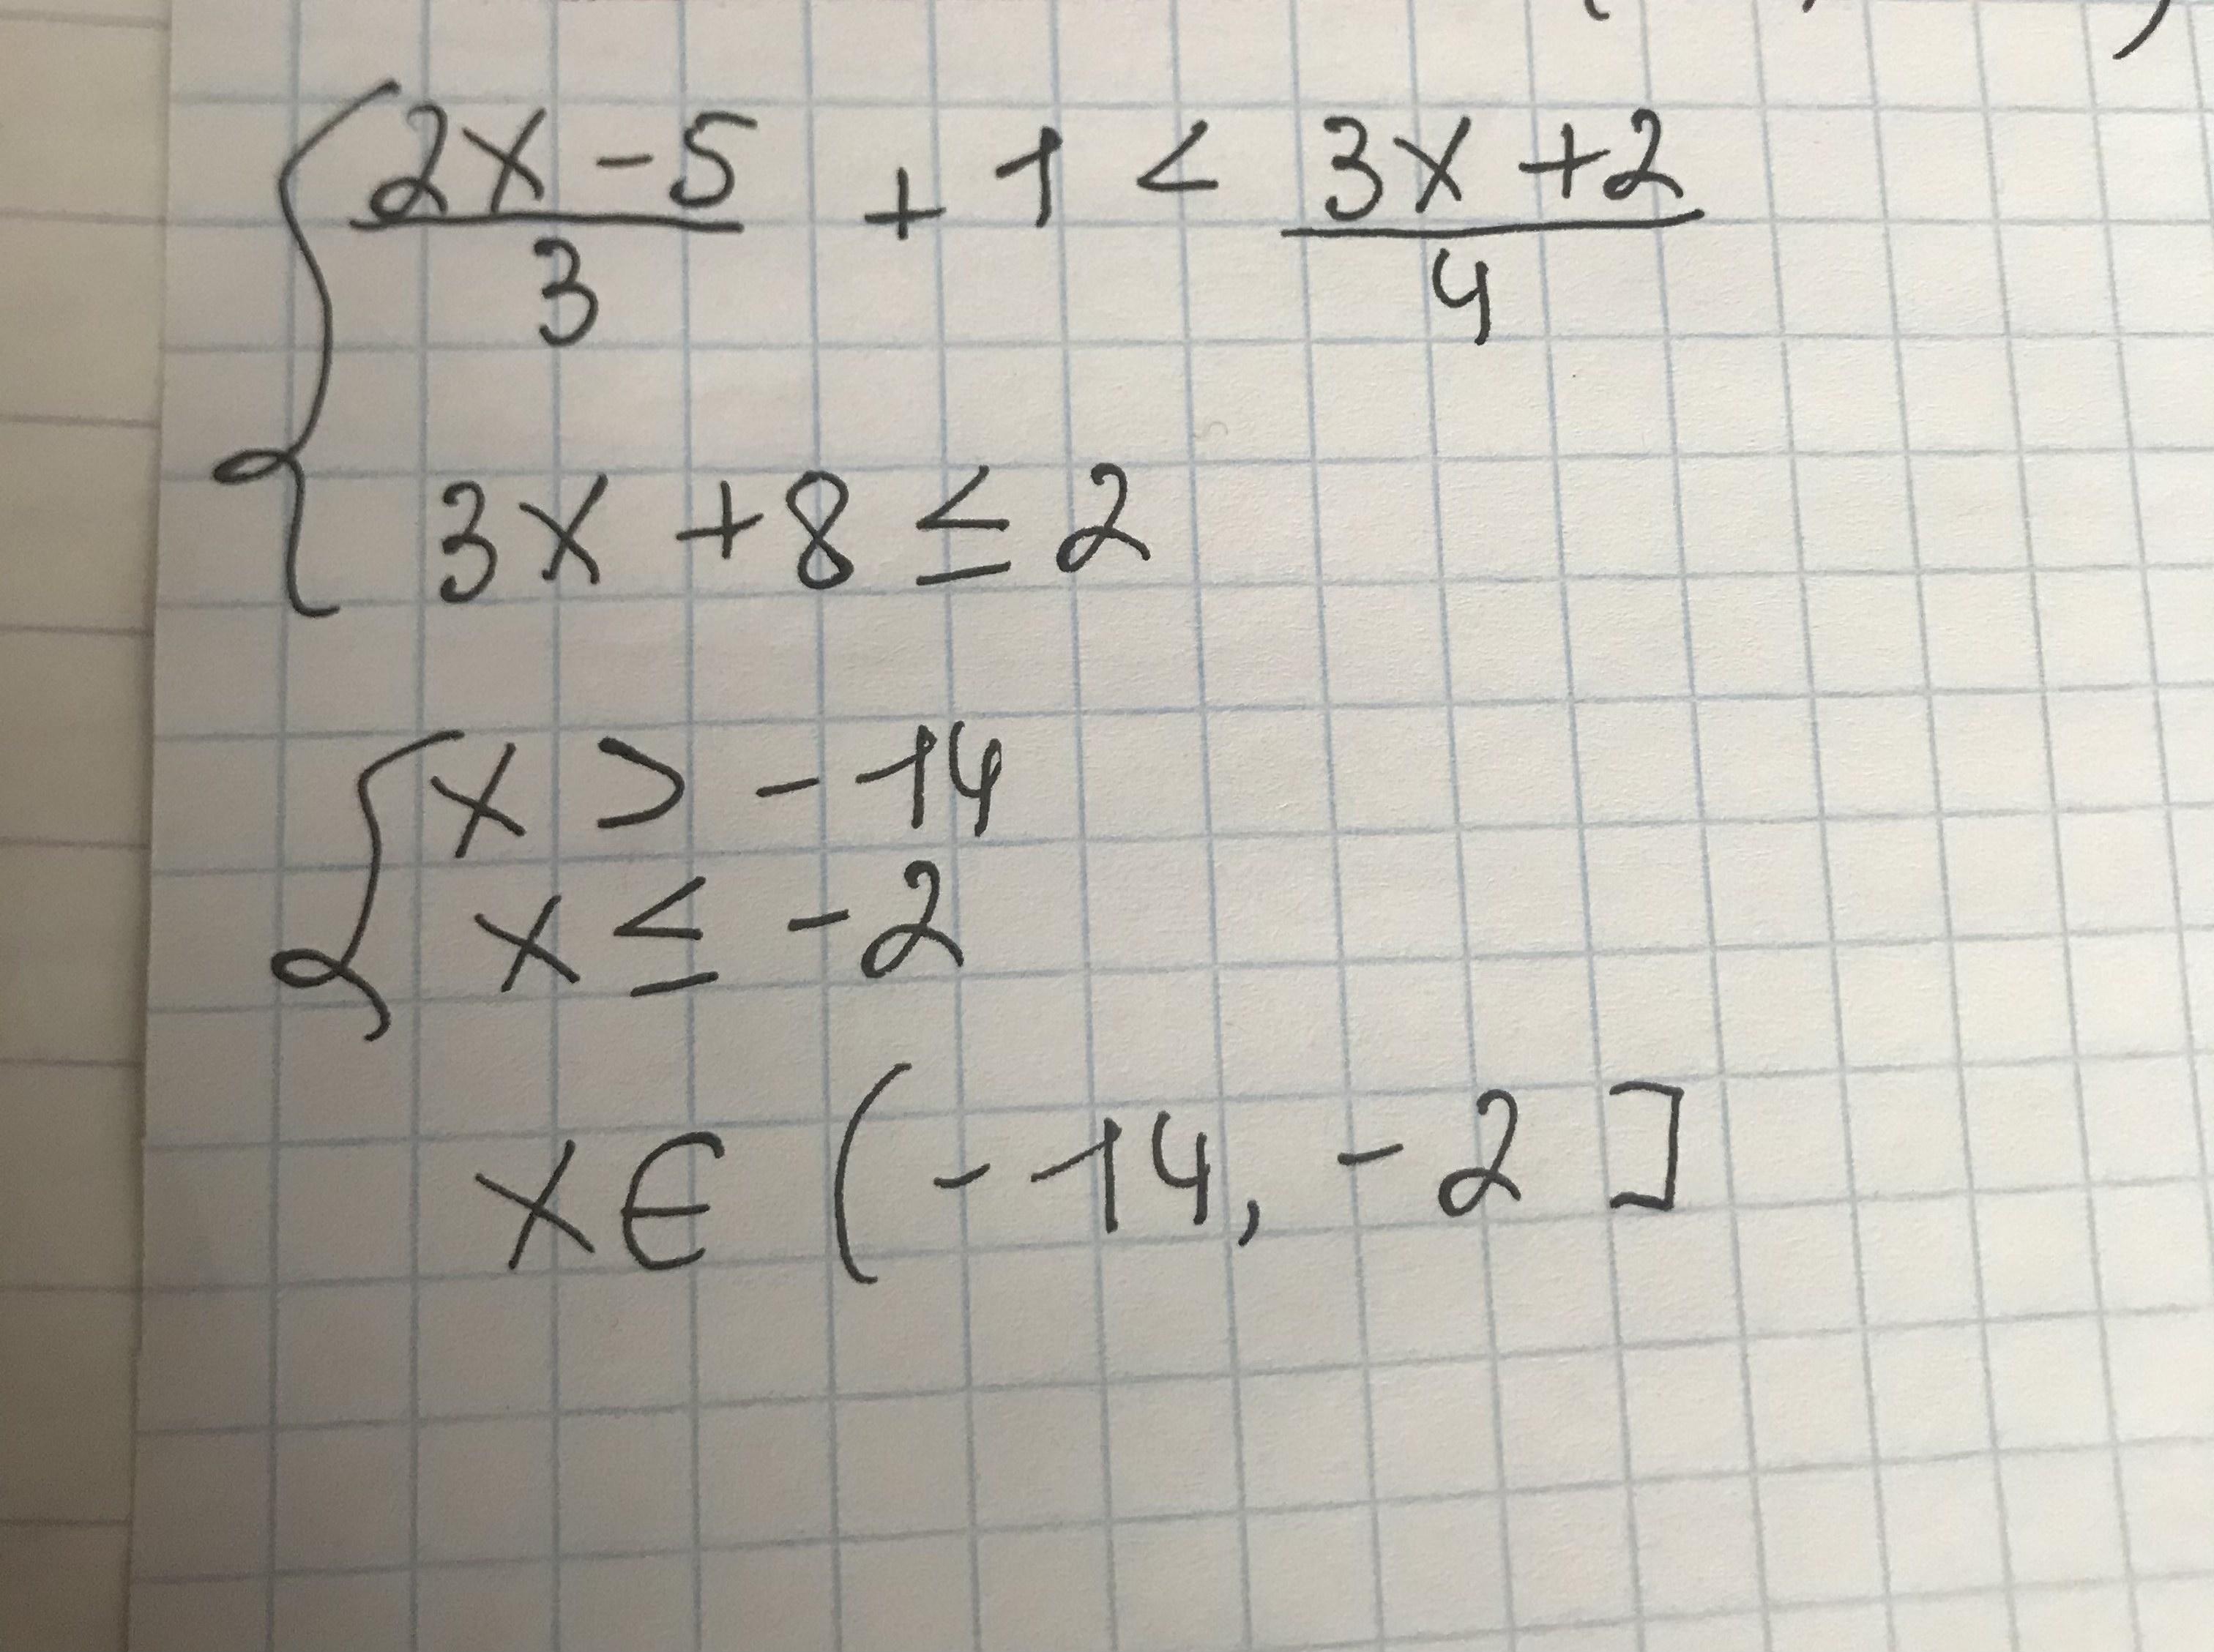 { (2x - 5)/3 + 1 < (3x + 2)/4
3x + 8 ≤ 2
{ x > -14
x ≤ -2
x ∈ (-14, -2]